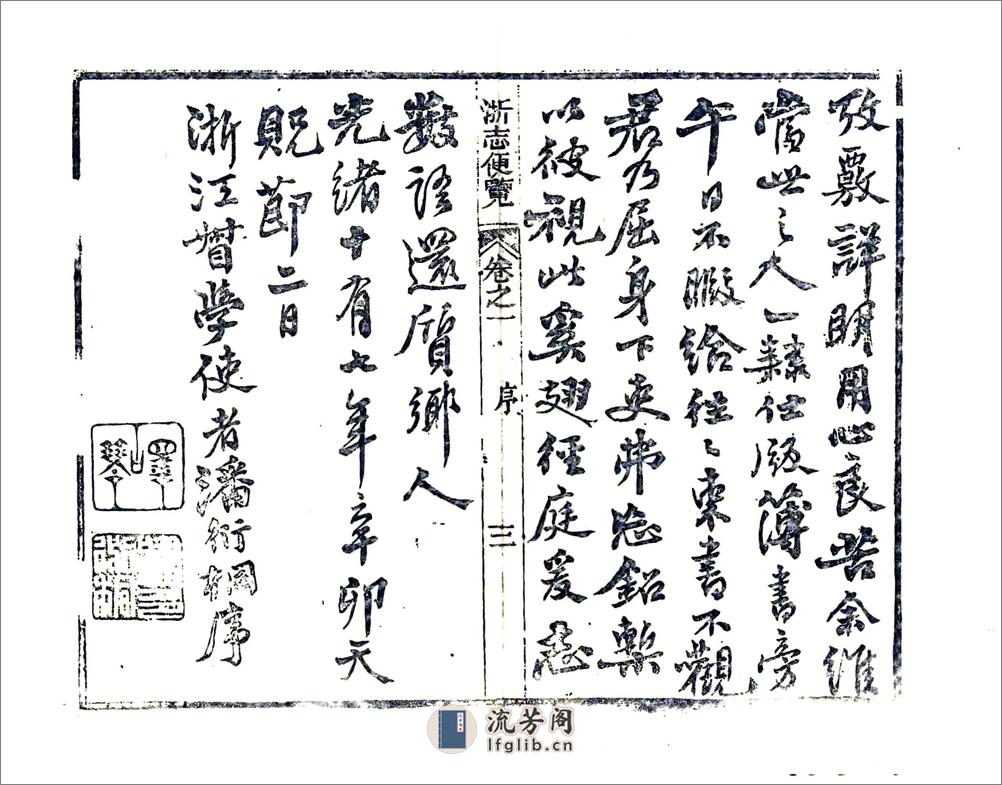 攷覈詳明用心良苦余維
當世之人一隸仕版薄書旁
午日不暇給往〻束書不觀
君乃屈身下吏弗忘鉛槧
以彼視此奚翅徑庭爰志
浙志便覽
卷之一
序
三
數語還質鄉人
光緒十有七年辛卯天
貺節二日
浙江督學使者潘衍桐序
流芳阁
lfglib.cn